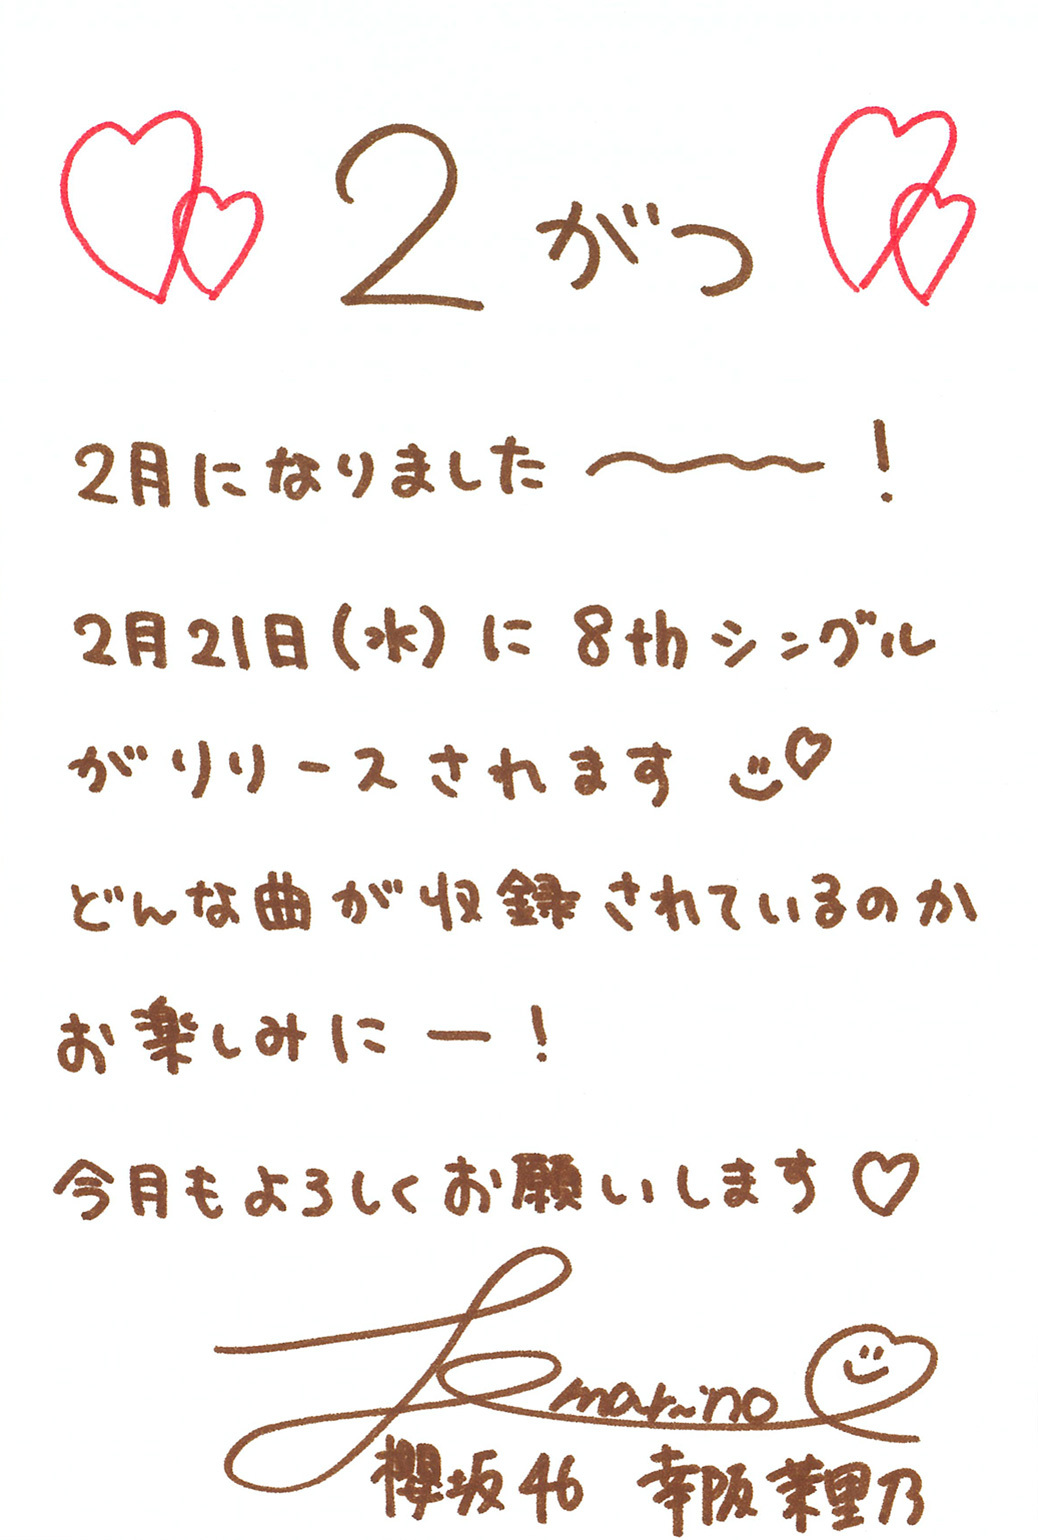 2がつ
2月になりました〜！
2月21日(水)に 8thシングル
がリリースされます
どんな曲が収録されているのか
お楽しみにー！
今月もよろしくお願いします♡
marino
櫻坂46 幸阪茉里乃